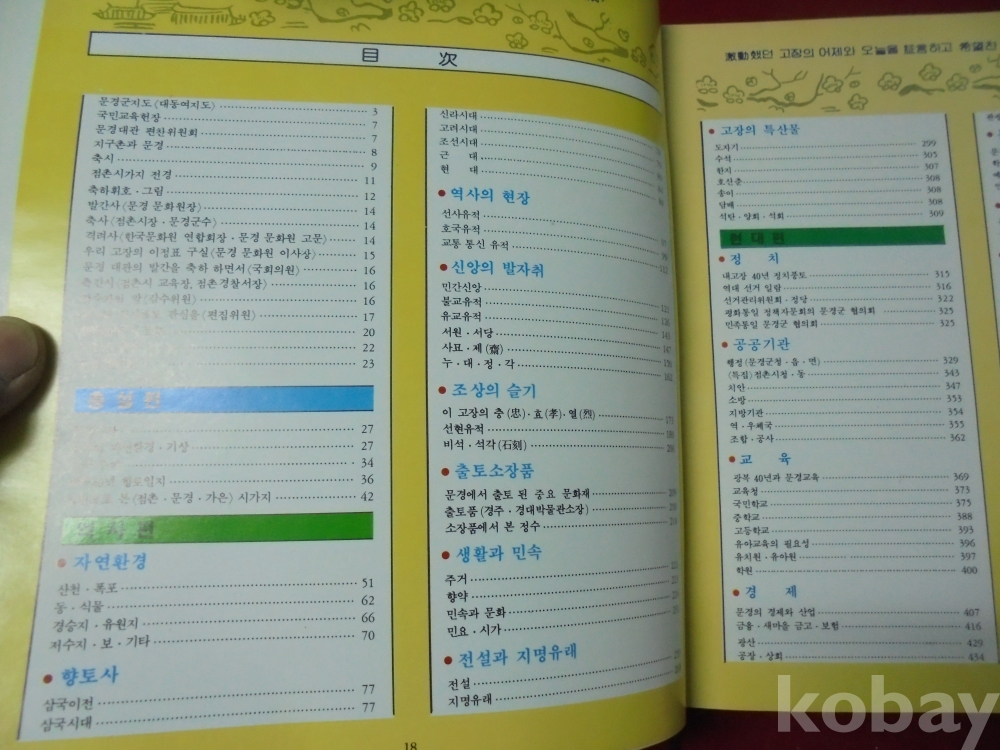 目 次
문경군지도 (대동여지도) 3
국민교육헌장 7
문경대관 편찬위원회 7
지구촌과 문경 8
축시 9
점촌시가지 전경 11
축하휘호 · 그림 12
발간사 (문경 문화원장) 14
축사 (점촌시장 · 문경군수) 14
격려사 (한국문화원 연합회장 · 문경 문화원 고문) 14
우리 고장의 이정표 구실 (문경 문화원 이사장) 15
문경 대관의 발간을 축하 하면서 (국회의원) 16
축간사 (점촌시 교육장, 점촌경찰서장) 16
(감수위원) 16
관심을 (편집위원) 17
20
22
23
27
환경 · 기상 27
34
36
본 (점촌 · 문경 · 가은) 시가지 42
역사편
• 자연환경
산천 · 폭포 51
동 · 식물 62
경승지 · 유원지 66
저수지 · 보 · 기타 70
• 향토사
삼국이전 77
삼국시대 77
신라시대
고려시대
조선시대
근 대
현 대
• 역사의 현장
선사유적
호국유적
교통 통신 유적
• 신앙의 발자취
민간신앙
불교유적
유교유적
서원 · 서당
사묘 · 제 (齋)
누 · 대 · 정 · 각
• 조상의 슬기
이 고장의 충 (忠) · 효 (孝) · 열 (烈)
선현유적
비석 · 석각 (石刻)
• 출토소장품
문경에서 출토 된 중요 문화재
출토품 (경주 · 경대박물관소장)
소장품에서 본 정수
• 생활과 민속
주거
향약
민속과 문화
민요 · 시가
• 전설과 지명유래
전설
지명유래
18
激動했던 고장의 어제와 오늘을 証言하고 希望찬
• 고장의 특산물
도자기 299
수석 305
한지 307
호산춘 308
송이 308
담배 308
석탄 · 양회 · 석회 309
현대편
• 정 치
내고장 40년 정치풍토 315
역대 선거 일람 316
선거관리위원회 · 정당 322
평화통일 정책자문회의 문경군 협의회 325
민족통일 문경군 협의회 325
• 공공기관
행정 (문경군청 · 읍 · 면) 329
(특집) 점촌시청 · 동 343
치안 347
소방 353
지방기관 354
역 · 우체국 355
조합 · 공사 362
• 교 육
광복 40년과 문경교육 369
교육청 373
국민학교 375
중학교 388
고등학교 393
유아교육의 필요성 396
유치원 · 유아원 397
학원 400
• 경 제
문경의 경제와 산업 407
금융 · 새마을 금고 · 보험 416
광산 429
공장 · 상회 434
kobay